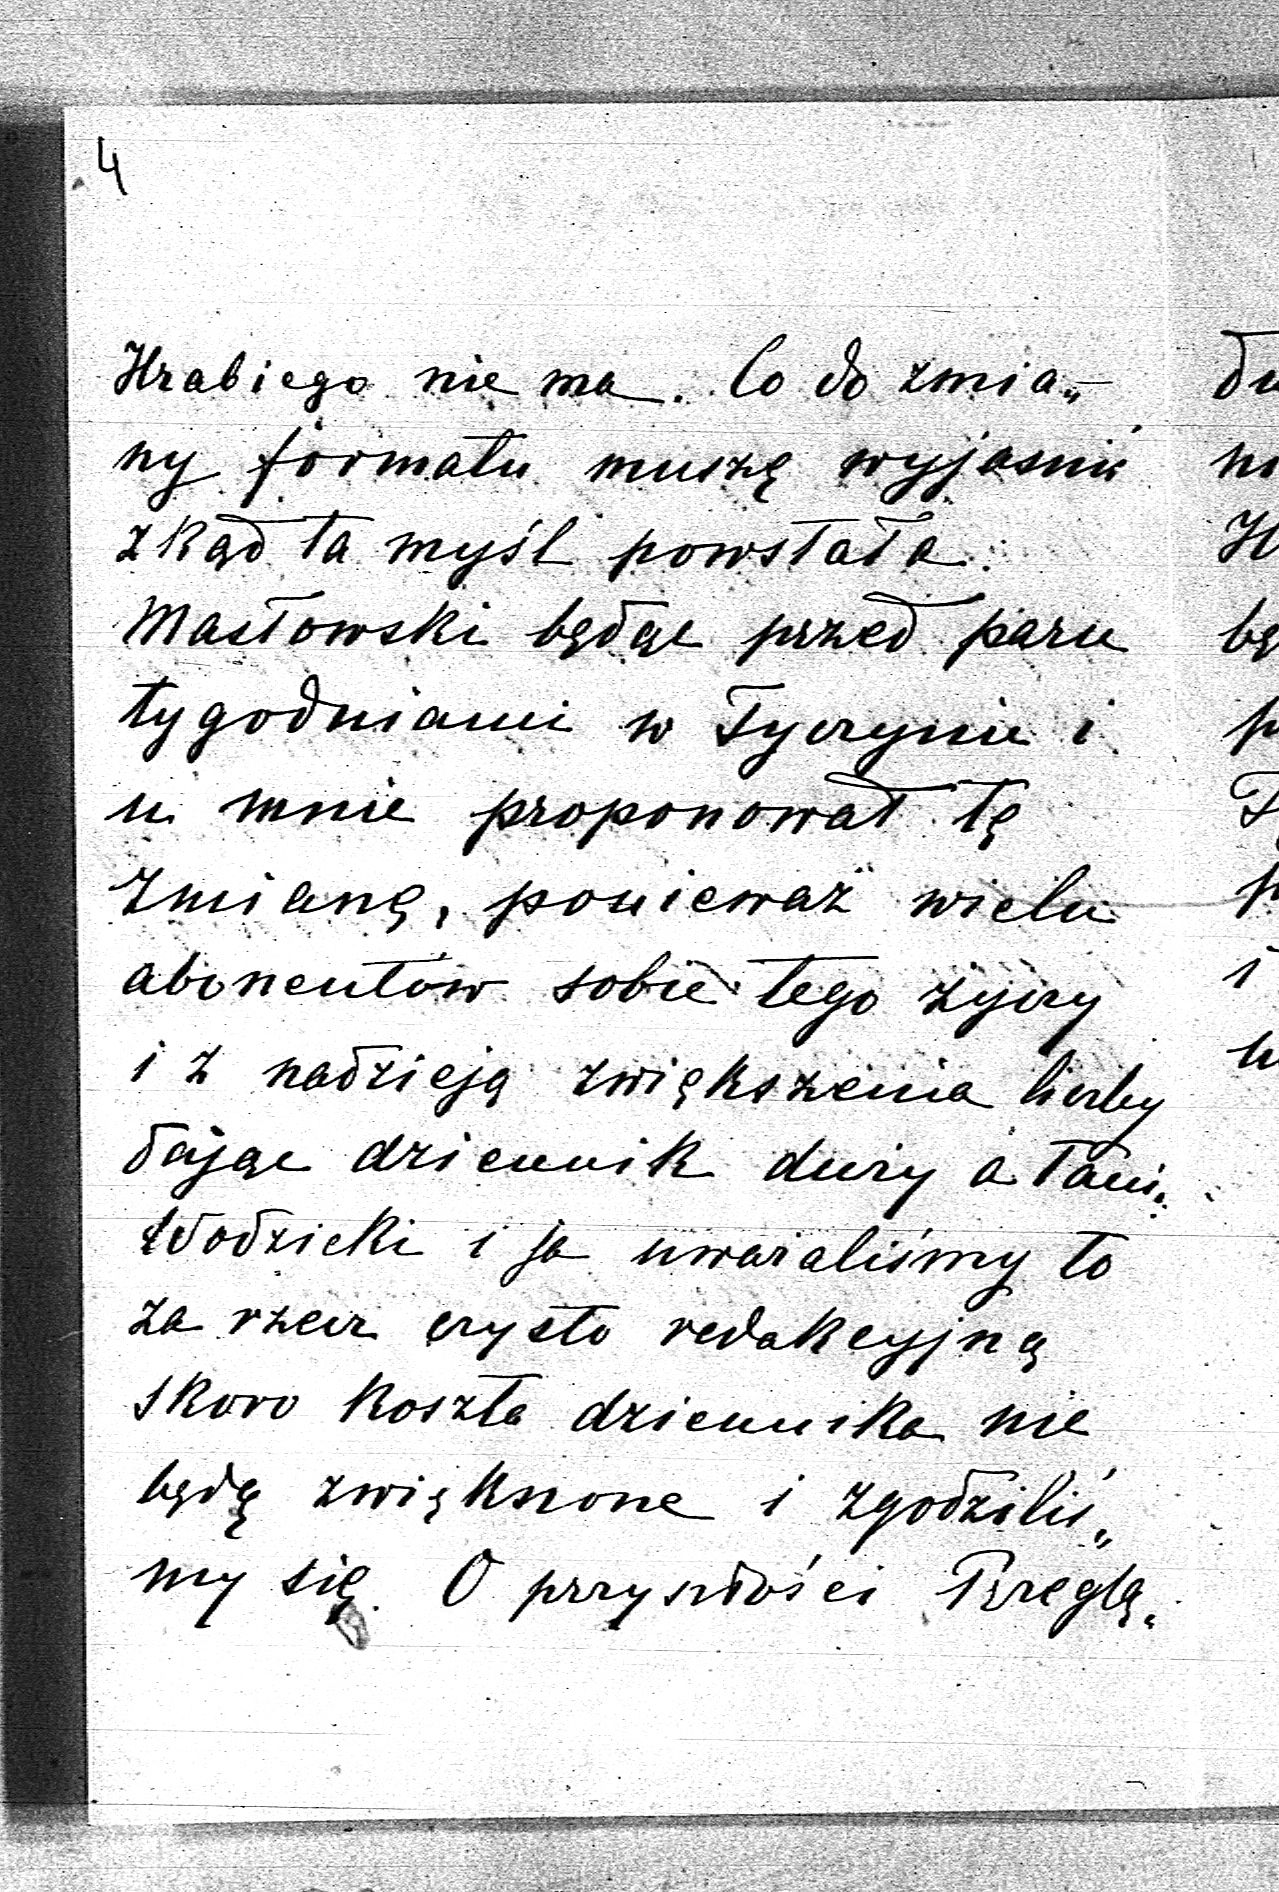 4
Hrabiego nie ma. Co do zmia„
ny formatu muszę wyjaśnić
zkąd ta myśl powstała.
Masłowski będąc przed paru
tygodniami w Tyczynie i
u mnie proponował tę
zmianę, ponieważ wielu
abonentów sobie tego życzy
i z nadzieją zwiększenia liczby
dając dziennik duży a tani.
Wodzicki i ja uważaliśmy to
za rzecz czysto redakcyjną
skoro koszta dziennika nie
będą zwiększone i zgodziliś„
my się. O przyszłości Przeglą„